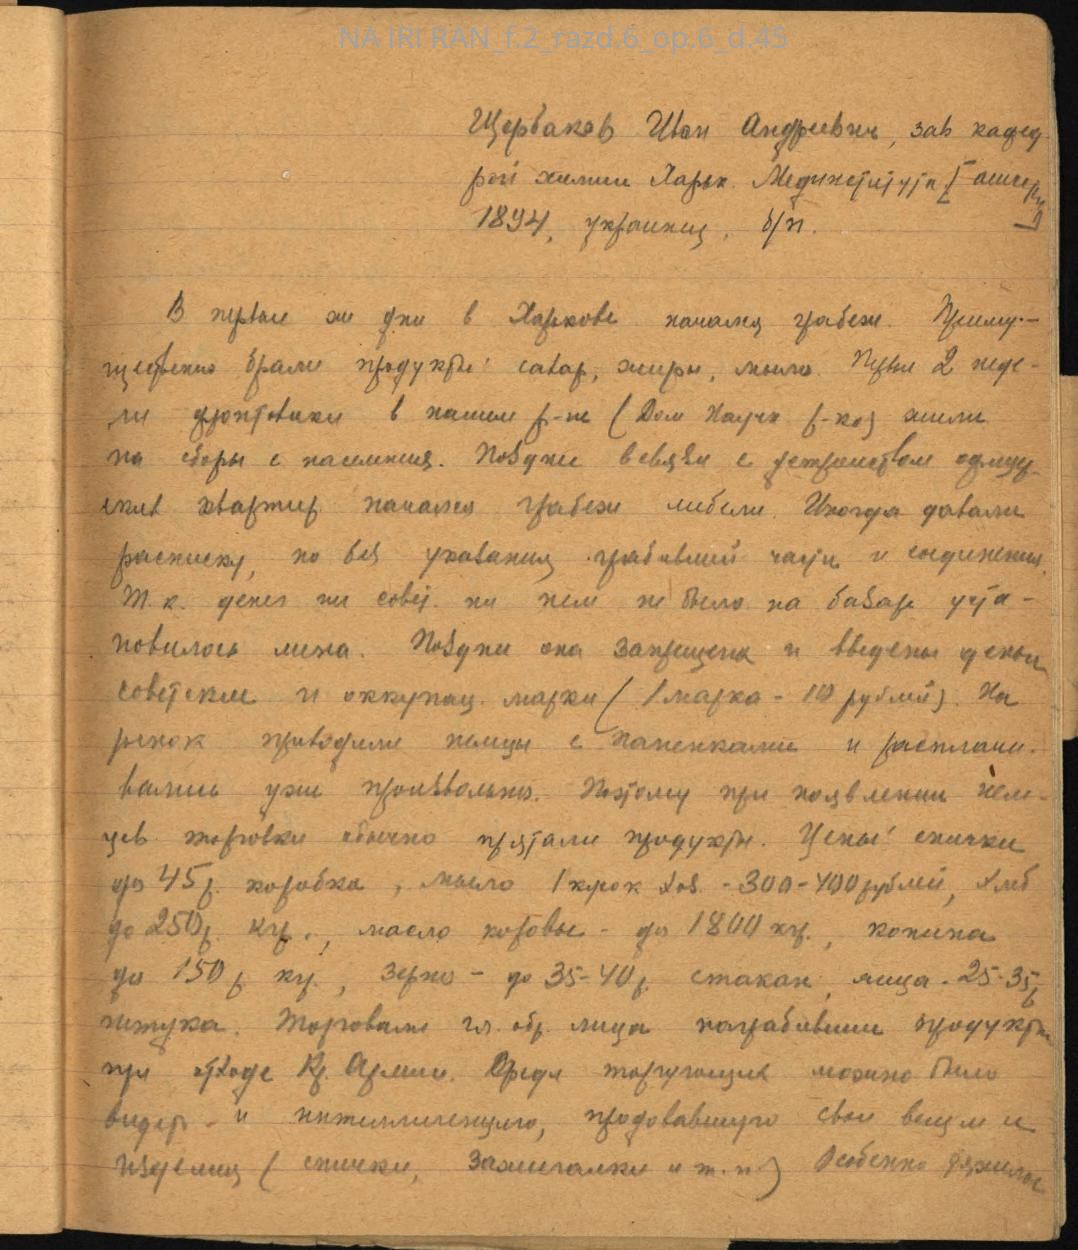 NA IRI RAN_f.2_razd.6_op.6_d.45
Щербаков Иван Андреевич, зав кафед-
рой химии Харьк. Мединститута
1894, украинец, б/п.
В первые же дни в Харькове начался грабеж. Преиму-
щественно брали продукты: сахар, жиры, мыло. Первые 2 неде-
ли фронтовики в нашем р-не (Дом Научн. р-ков) жили
на сборы с населения. Позднее в связи с устройством офицер-
ских квартир начался грабеж мебели. Иногда давали
расписку, но без указания грабившей части и соединения.
Т.к. денег ни совет. ни нем. не было на базаре уста-
новилась мена. Позднее она запрещена и введены деньги
советские и оккупац. марки (1 марка - 10 рублей). На
рынок приходили немцы с паненками и расплачи-
вались уже произвольно. Поэтому при появлении нем-
цев торговки обычно прятали продукты. Цены: спички
до 45 р. коробка, мыло 1 кусок хоз. - 300-400 рублей, хлеб
до 250 р. кг., масло коровье - до 1800 кг., конина
до 150 р кг., зерно - до 35-40 р. стакан, яйца - 25-35 р
штука. Торговали гл. обр. лица награбившие продукты
при отходе Кр. Армии. Среди торгующих можно было
видеть и интеллигенцию, продававшую свои вещи и
изделия (спички, зажигалки и т.п.) Особенно